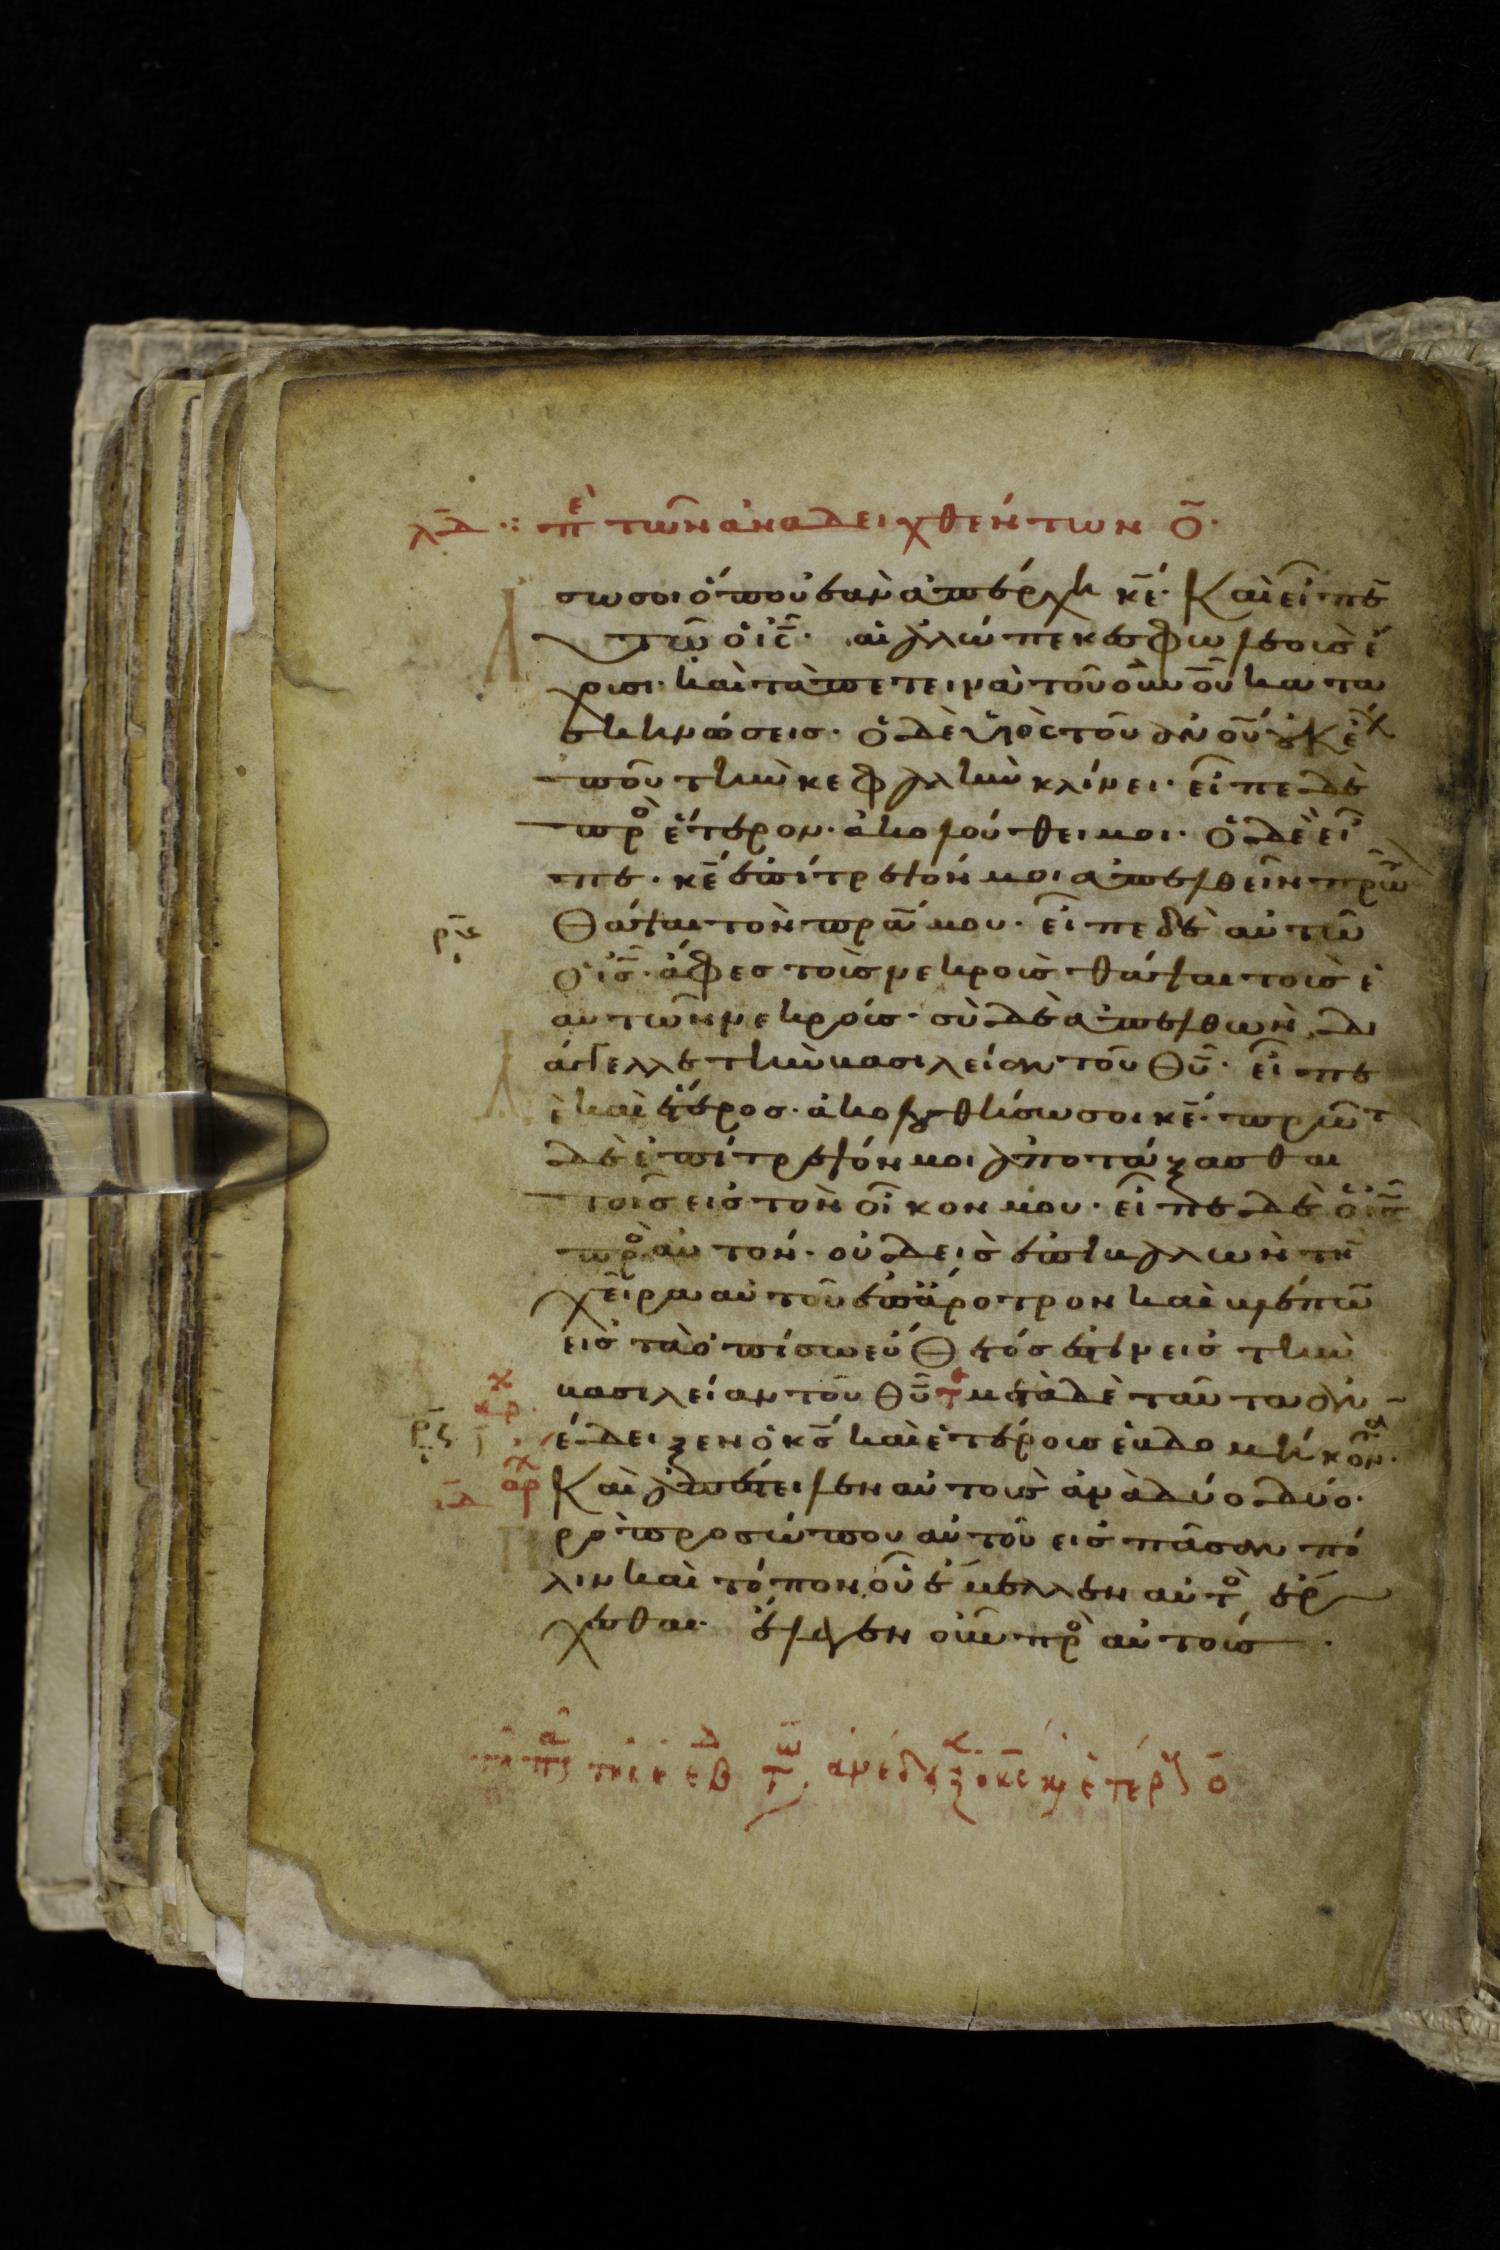 λδ ⁘ πε τῶν ἀναδειχθέντων ο̄·
σω σοι ὅπου ἐὰν ἀπέρχη κε̄· Καὶ εἶπεν
τῶ ὁ ις̄· αἱ ἀλώπεκες φωλεοὺς ἔ
χουσι· καὶ τὰ πετεινὰ τοῦ οὐνοῦ κατα
σκηνώσεις· ὁ δὲ υἱὸς τοῦ ἀνοῦ οὐκ ἔχ
ποῦ τὴν κεφαλὴν κλίνει· εἶπε δὲ
πρὸ ἕτερον· ἀκολούθει μοι· ὁ δὲ εἶ
πε· κε̄ ἐπίτρεψόν μοι ἀπελθεῖν πρῶ
θάψαι τὸν πρᾱ μου· εἶπε δὲ αὐτῶ
ρε ὁ ις̄· ἄφες τοὺς νεκροὺς θάψαι τοὺς ἑ
αυτῶν νεκρούς· σὺ δὲ ἀπελθὼν δι
άγγελλε τὴν βασιλείαν τοῦ θῡ· εἶπε
δὲ καὶ ἕτερος· ἀκολουθήσω σοι κε̄· πρῶτ
δὲ ἐπίτρεψόν μοι ἀποτάξασθαι
τοῖς εἰς τὸν οἶκον μου· εἶπε δὲ ὁ ις̄
πρὸ αὐτόν· οὐδεὶς ἐπιβαλὼν τὴ
χεῖρα αὐτοῦ ἐπ' ἄροτρον καὶ βλέπων
εἰς τὰ ὀπίσω εὔθετός ἐστιν εἰς τὴν
βασιλείαν τοῦ θῡ τε μετὰ δὲ ταῦτα ἀν
ρς έδειξεν ὁ κς̄ καὶ ἑτέρους ἑβδομήκον·
ιδ αρχ Καὶ ἀπέστειλεν αὐτοὺς ἀνὰ δύο δύο·
πρὸ προσώπου αὐτοῦ εἰς πᾶσαν πό
λιν καὶ τόπον οὗ ἔμελλεν αὐτὸ ἔρ
χεσθαι· ἔλεγεν οὖν πρὸ αὐτούς·